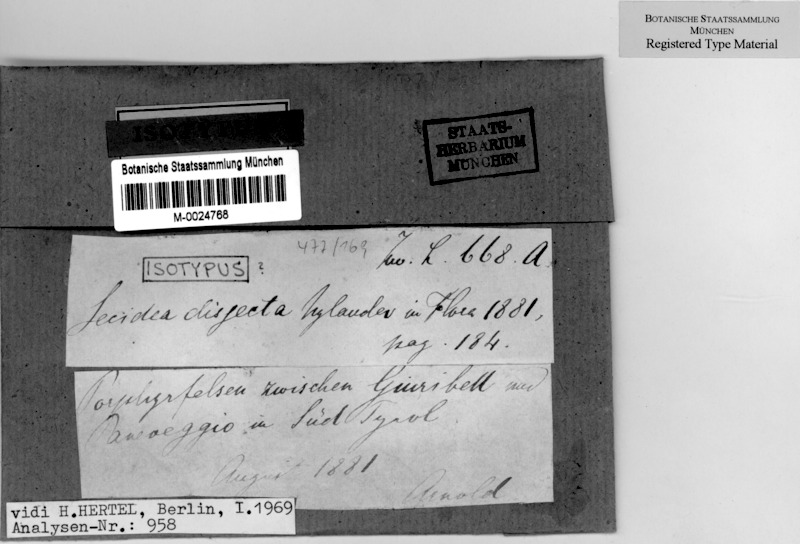 BOTANISCHE STAATSSAMMLUNG
MÜNCHEN
Registered Type Material
ISOTYPUS
STAATS-
HERBARIUM
MÜNCHEN
Botanische Staatssammlung München
M-0024768
477/169
L. 668. A
ISOTYPUS ?
Lecidea disjecta Nylander in Flora 1881,
pag. 184.
Porphyrfelsen zwischen Giuribell und
Paneveggio in Süd Tyrol
August 1881
Arnold
vidi H.HERTEL, Berlin, I.1969
Analysen-Nr.: 958